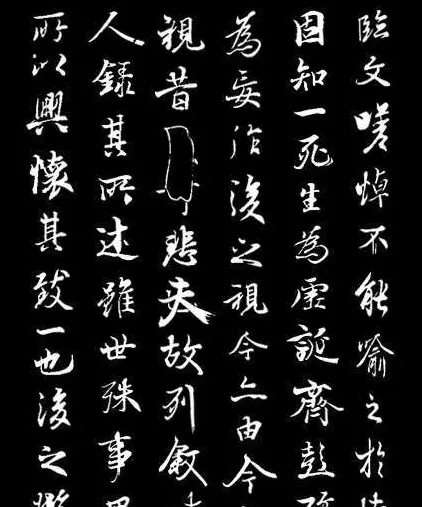 臨文嗟悼不能喻之於
固知一死生為虛誕齊彭
為妄作後之視今亦由今
視昔悲夫故列敘
人錄其所述雖世殊事
所以興懷其致一也後之